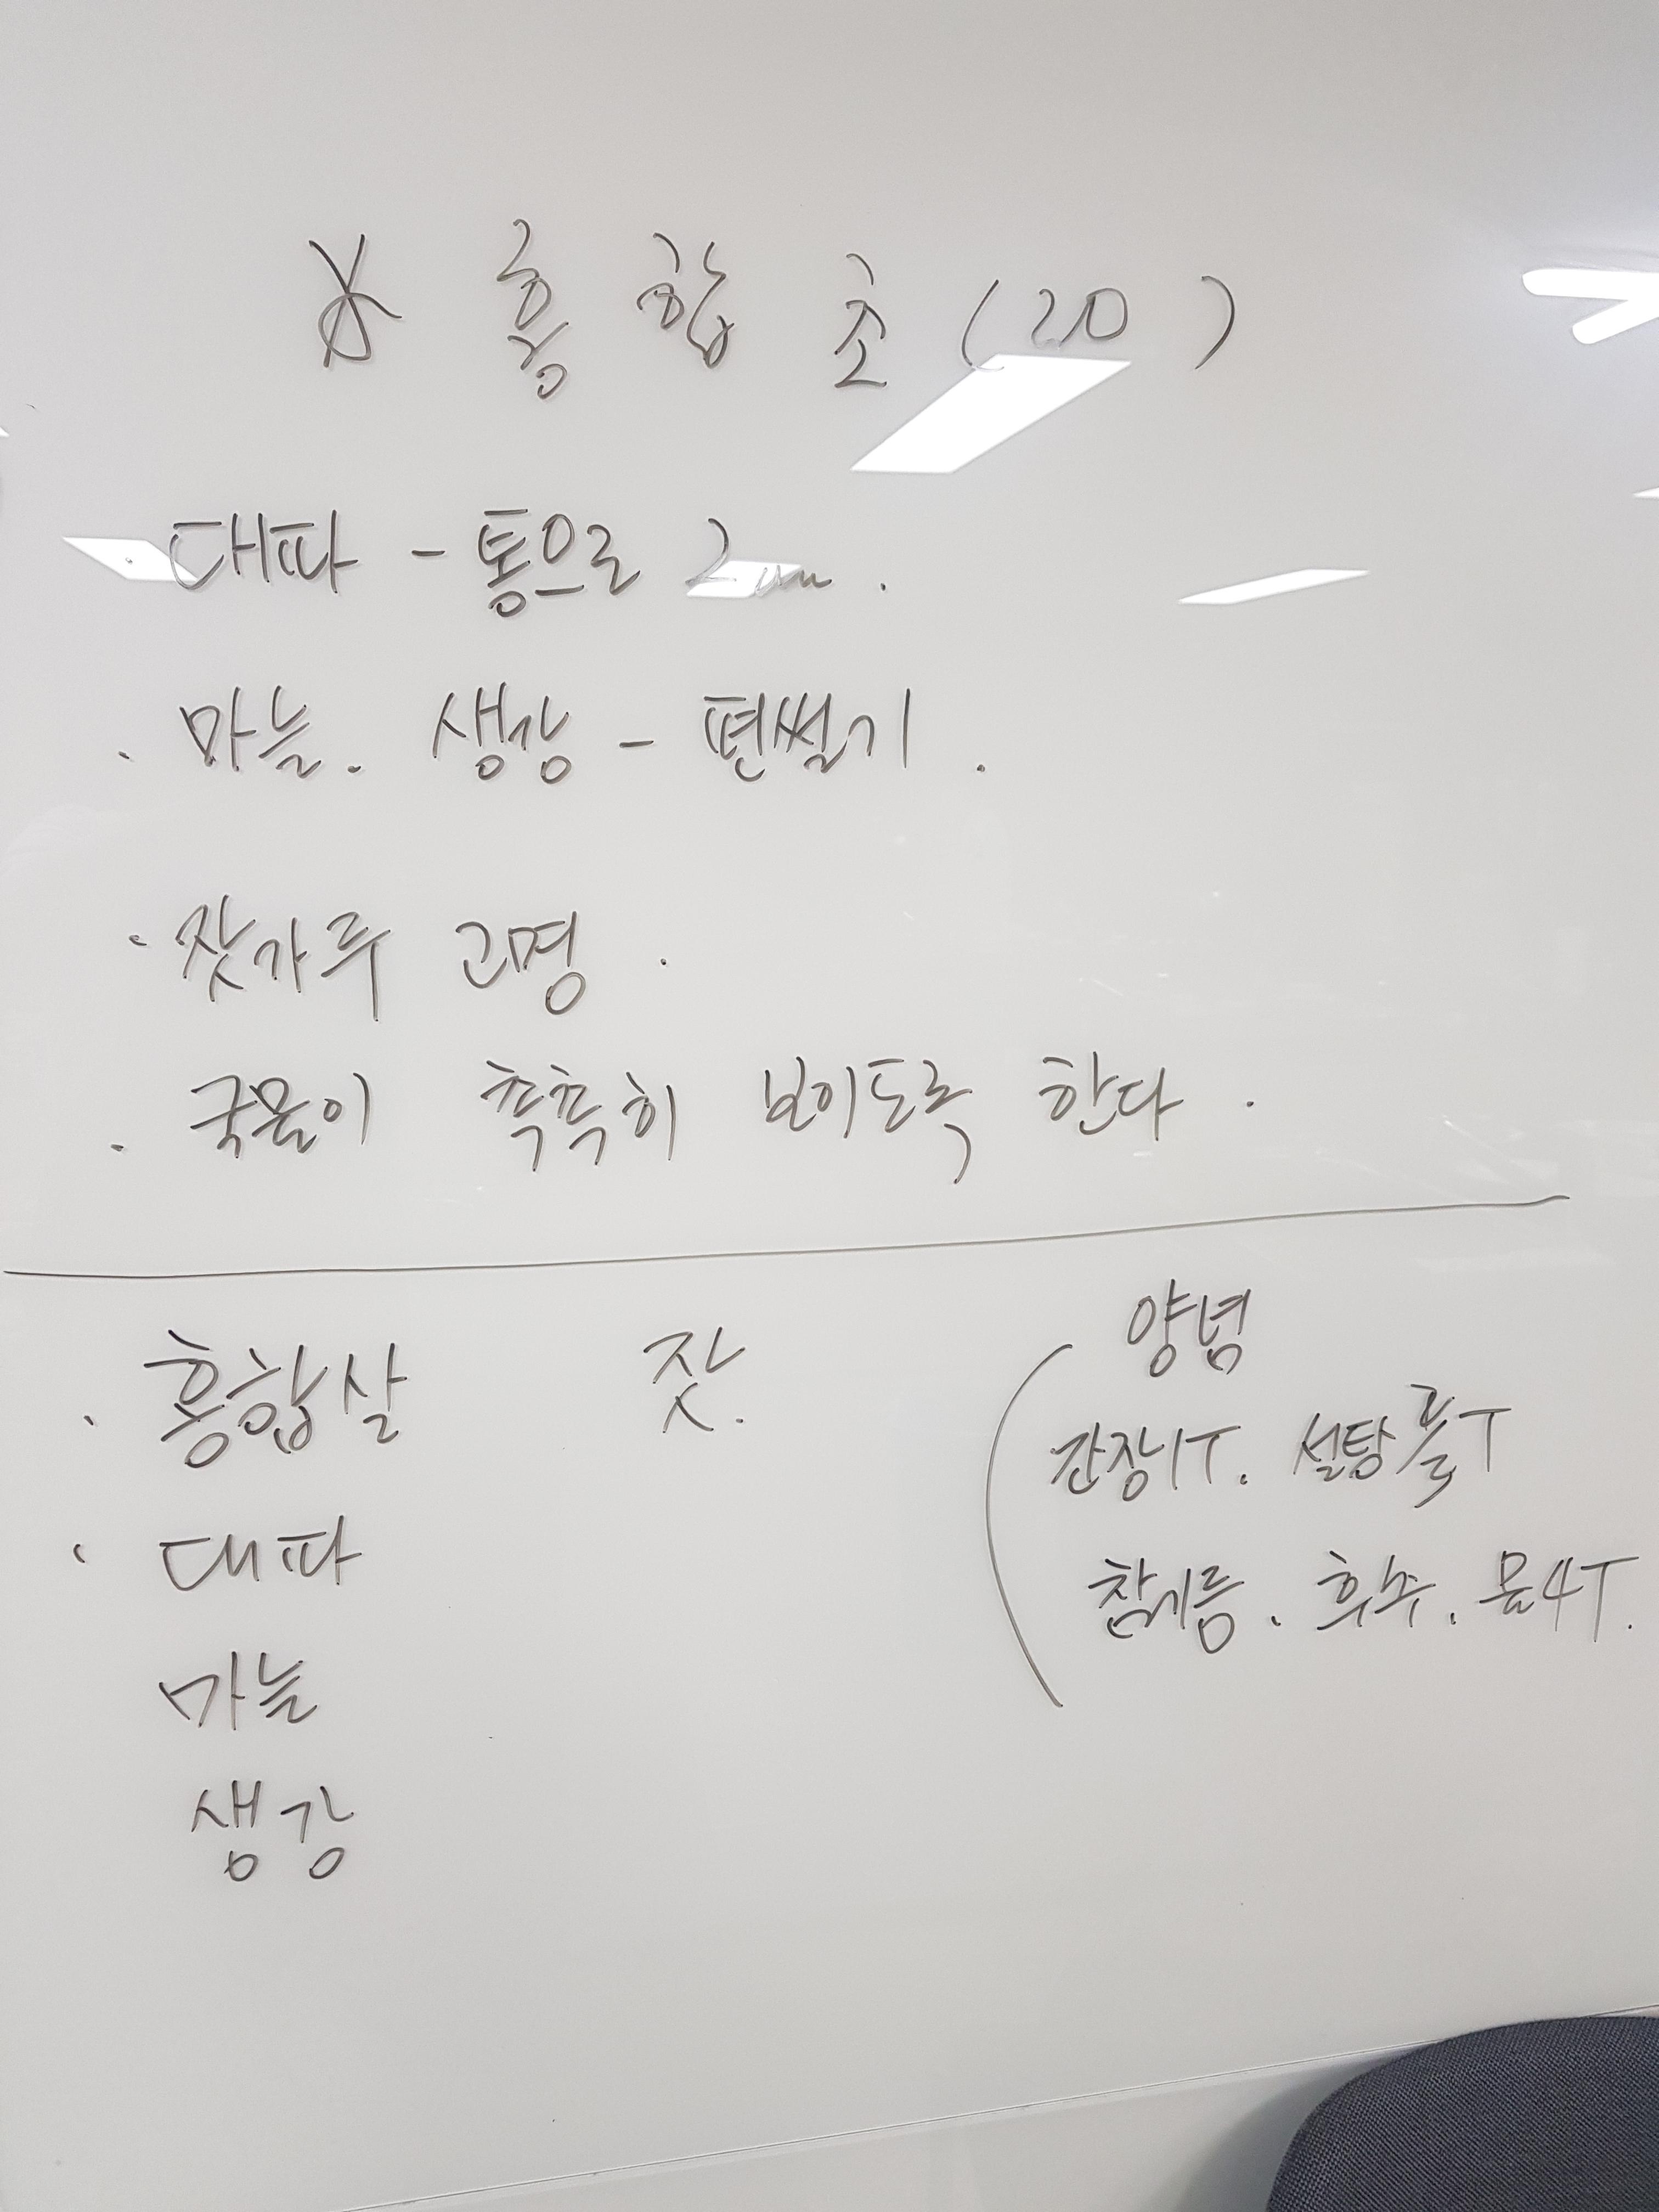 ※ 홍합초 (20)
대파 - 통으로 2cm.
· 마늘. 생강 - 편썰기.
· 잣가루 고명.
· 국물이 촉촉히 보이도록 한다.
· 홍합살 잣.
· 대파
마늘
생강
양념
간장1T. 설탕 T
참기름. 후추. 물4T.